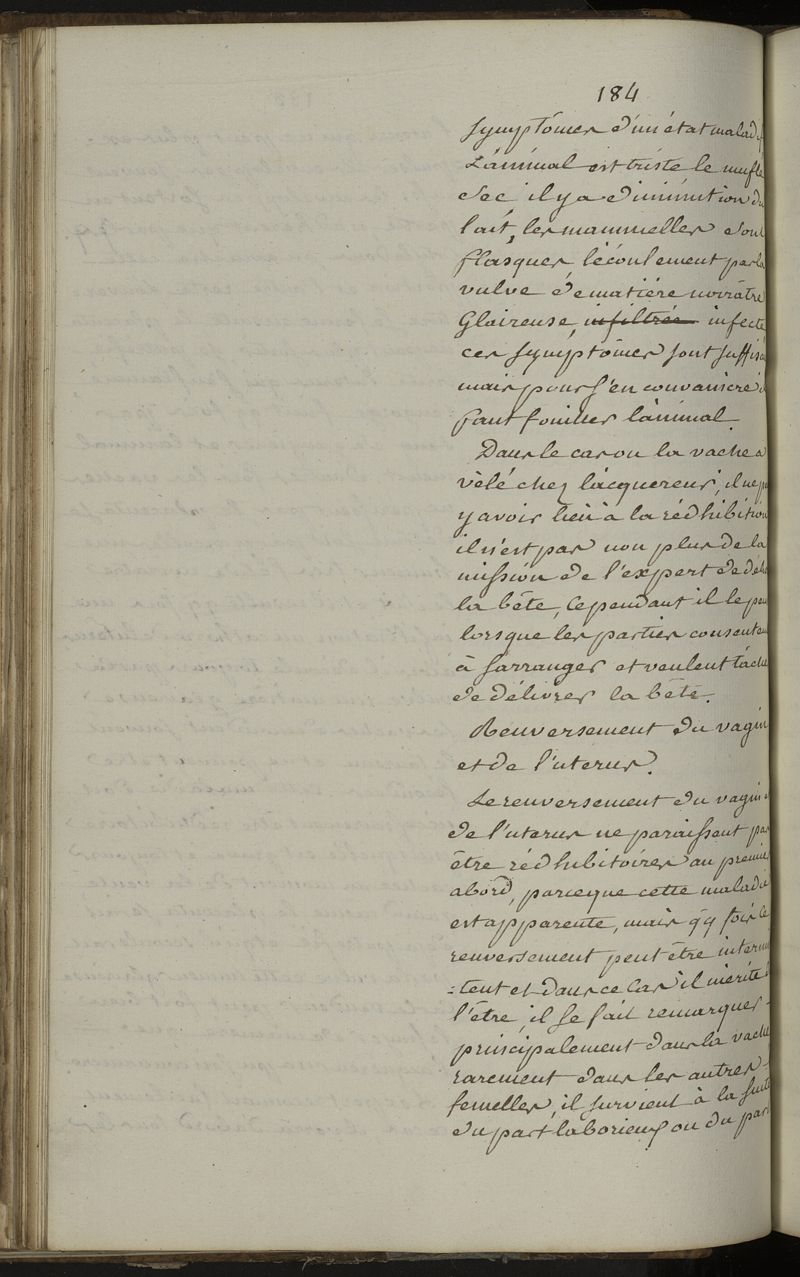 184
symptômes d'un état maladif
L'animal est triste le mufle
sec il y a diminution du
lait, les mammelles sont
flasques, l'écoulement par la
vulve de matière noirâtre
Glaireuse, infiltrée infecte
ces symptômes sont suffisa
mais pour s'en convaincre i
faut fouiller l'animal.
Dans le cas ou la vache a
vêlé chez l'acquereur, il ne p
y avoir lieu à la rédhibition
il n'est pas non plus de la
mission de l'expert de dél
la bête, Cependant il le peu
lorsque les parties consente
à sarranger et veulent tâche
de délivrer la bête.
Renversement du vagin
et de l'uterus.
Le renversement du vagin e
de l'uterus ne paraissent pas
être rédhibitoires au premier
abord, parceque cette maladie
est apparente, mais qq fois le
renversement peut être intermi
=tent et dans ce Cas il mérite d
l'être, il se fait remarquer
principalement dans la vache
rarement dans les autres
femelles, il survient à la suite
du part laborieux ou du part